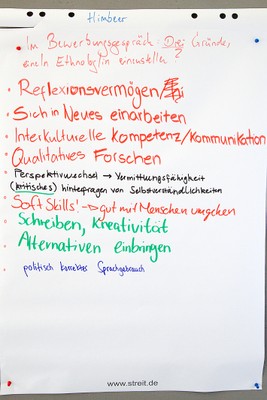 Himbeer
Im Bewerbungsgespräch: Drei Gründe,
eine/n Ethnolog/in einzustellen
• Reflexionsvermögen/
• Sich in Neues einarbeiten
• Interkulturelle Kompetenz/Kommunikation
• Qualitatives Forschen
• Perspektivwechsel → Vermittlungsfähigkeit
(kritisches) hinterfragen von Selbstverständlichkeiten
• Soft Skills! → gut mit Menschen umgehen
• Schreiben, Kreativität
• Alternativen einbringen
• politisch korrektes Sprachgebrauch
www.streit.de